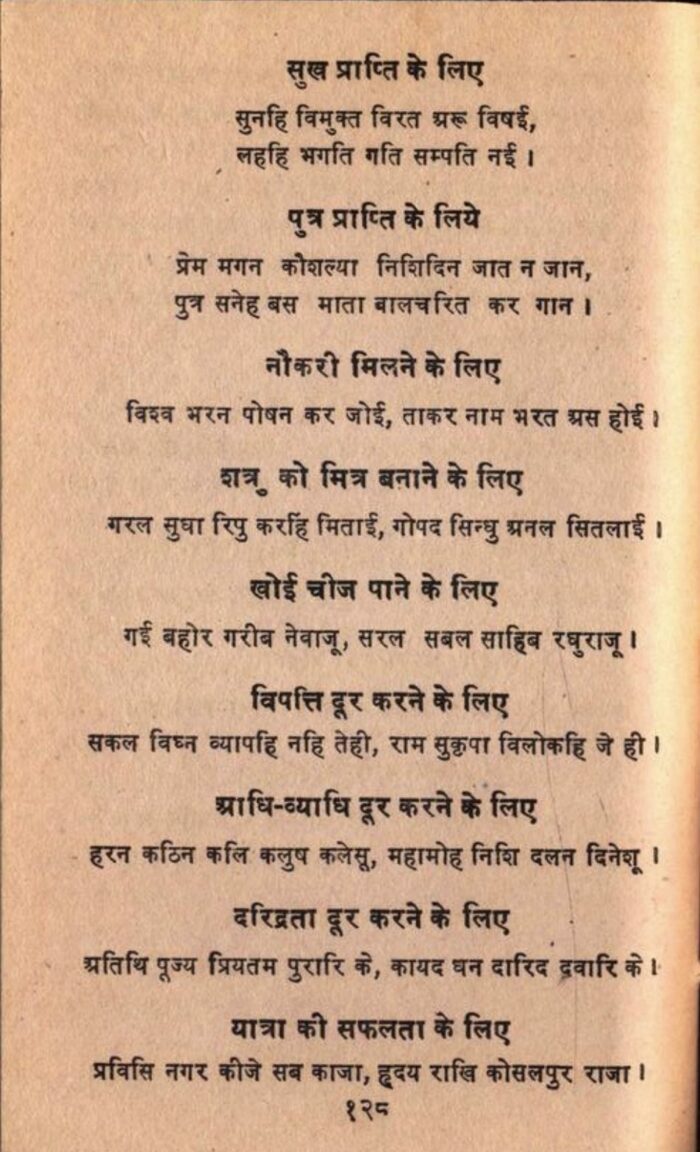 सुख प्राप्ति के लिए
सुनहि विमुक्त विरत अरू विषई,
लहहि भगति गति सम्पति नई ।
पुत्र प्राप्ति के लिये
प्रेम मगन कौशल्या निशिदिन जात न जान,
पुत्र सनेह बस माता बालचरित कर गान ।
नौकरी मिलने के लिए
विश्व भरन पोषन कर जोई, ताकर नाम भरत अस होई ।
शत्रु को मित्र बनाने के लिए
गरल सुधा रिपु करहिं मिताई, गोपद सिन्धु अनल सितलाई ।
खोई चीज पाने के लिए
गई बहोर गरीब नेवाजू, सरल सबल साहिब रघुराजू ।
विपत्ति दूर करने के लिए
सकल विघ्न व्यापहि नहि तेही, राम सुकृपा विलोकहि जे ही ।
आधि-व्याधि दूर करने के लिए
हरन कठिन कलि कलुष कलेसू, महामोह निशि दलन दिनेशू ।
दरिद्रता दूर करने के लिए
अतिथि पूज्य प्रियतम पुरारि के, कायद धन दारिद द्रवारि के ।
यात्रा की सफलता के लिए
प्रविसि नगर कीजे सब काजा, हृदय राखि कोसलपुर राजा ।
१२८